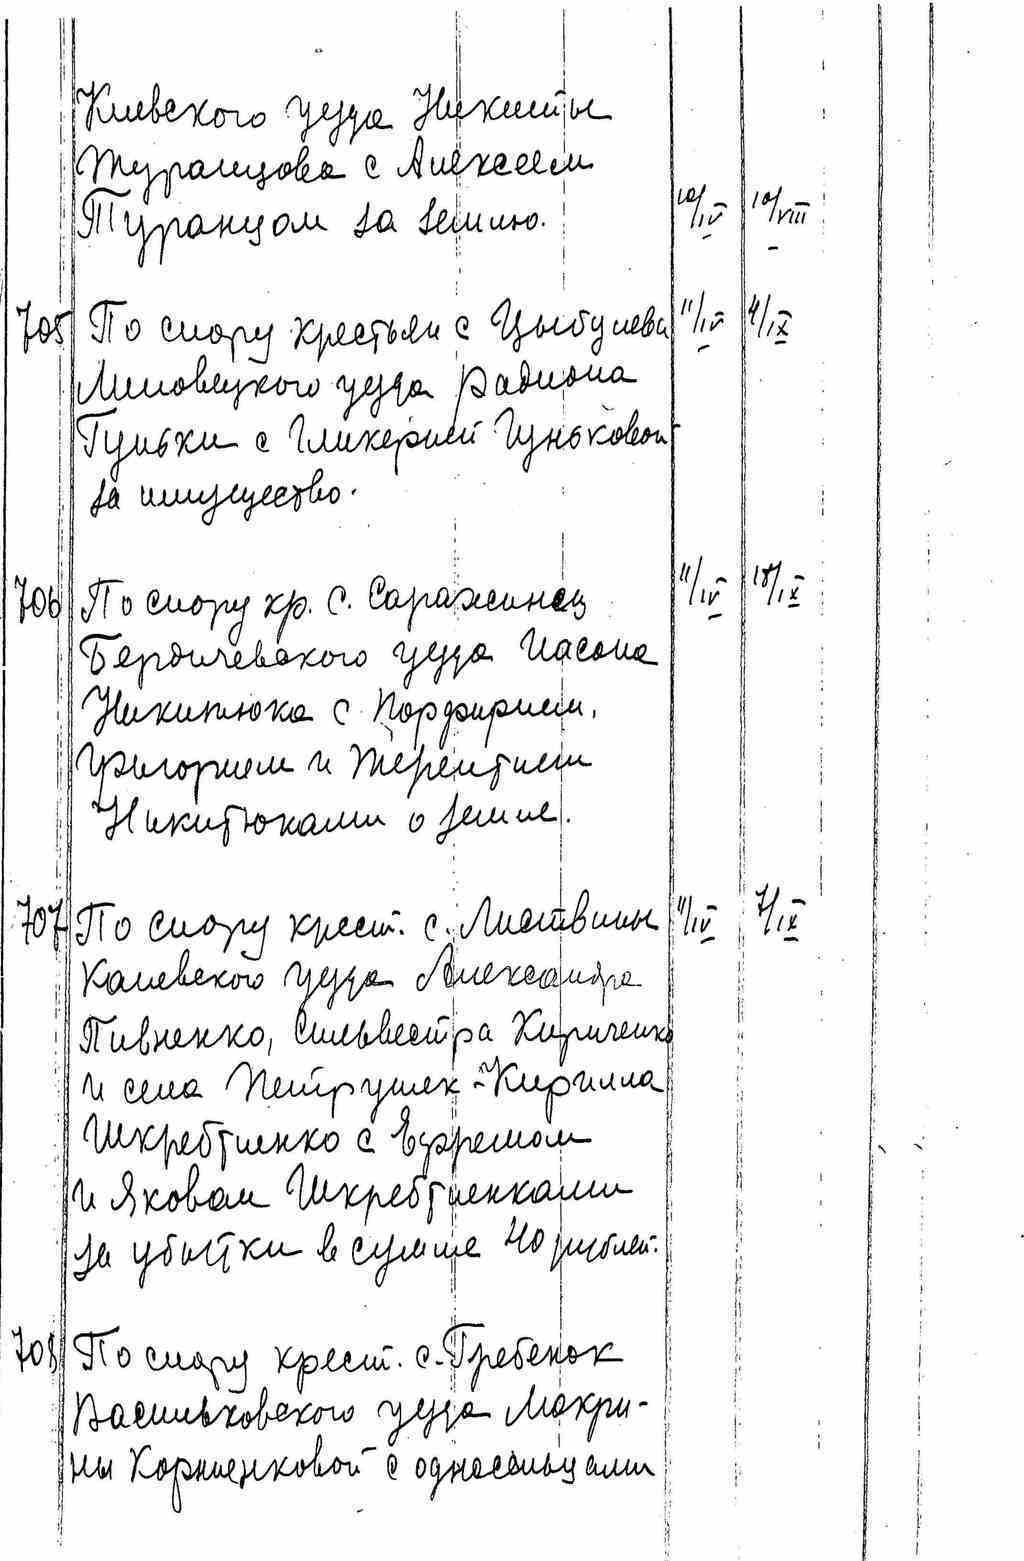 Киевского уезда Никиты
Туранцова с Алексеем
Туранцом за землю. 10/IV 10/VIII
705 По спору крестьян с Цыбулева 11/IV 4/IX
Липовецкого уезда Радиона
Гуньки с Гликерией Гуньковой
за имущество.
706 По спору кр. с. Саражинец 11/IV 18/IX
Бердичевского уезда Иасона
Никитюка с Порфирием,
Григорием и Терентием
Никитюками о земле.
707 По спору крест. с. Листвины 11/IV 7/IX
Каневского уезда Александра
Пивненко, Сильвестра Кириченко
и села Петрушек - Кирилла
Шкребтиенко с Ефремом
и Яковом Шкребтиенками
за убытки в сумме 40 рублей.
708 По спору крест. с. Гребенок
Васильковского уезда Макри-
ны Корниенковой с односельцами